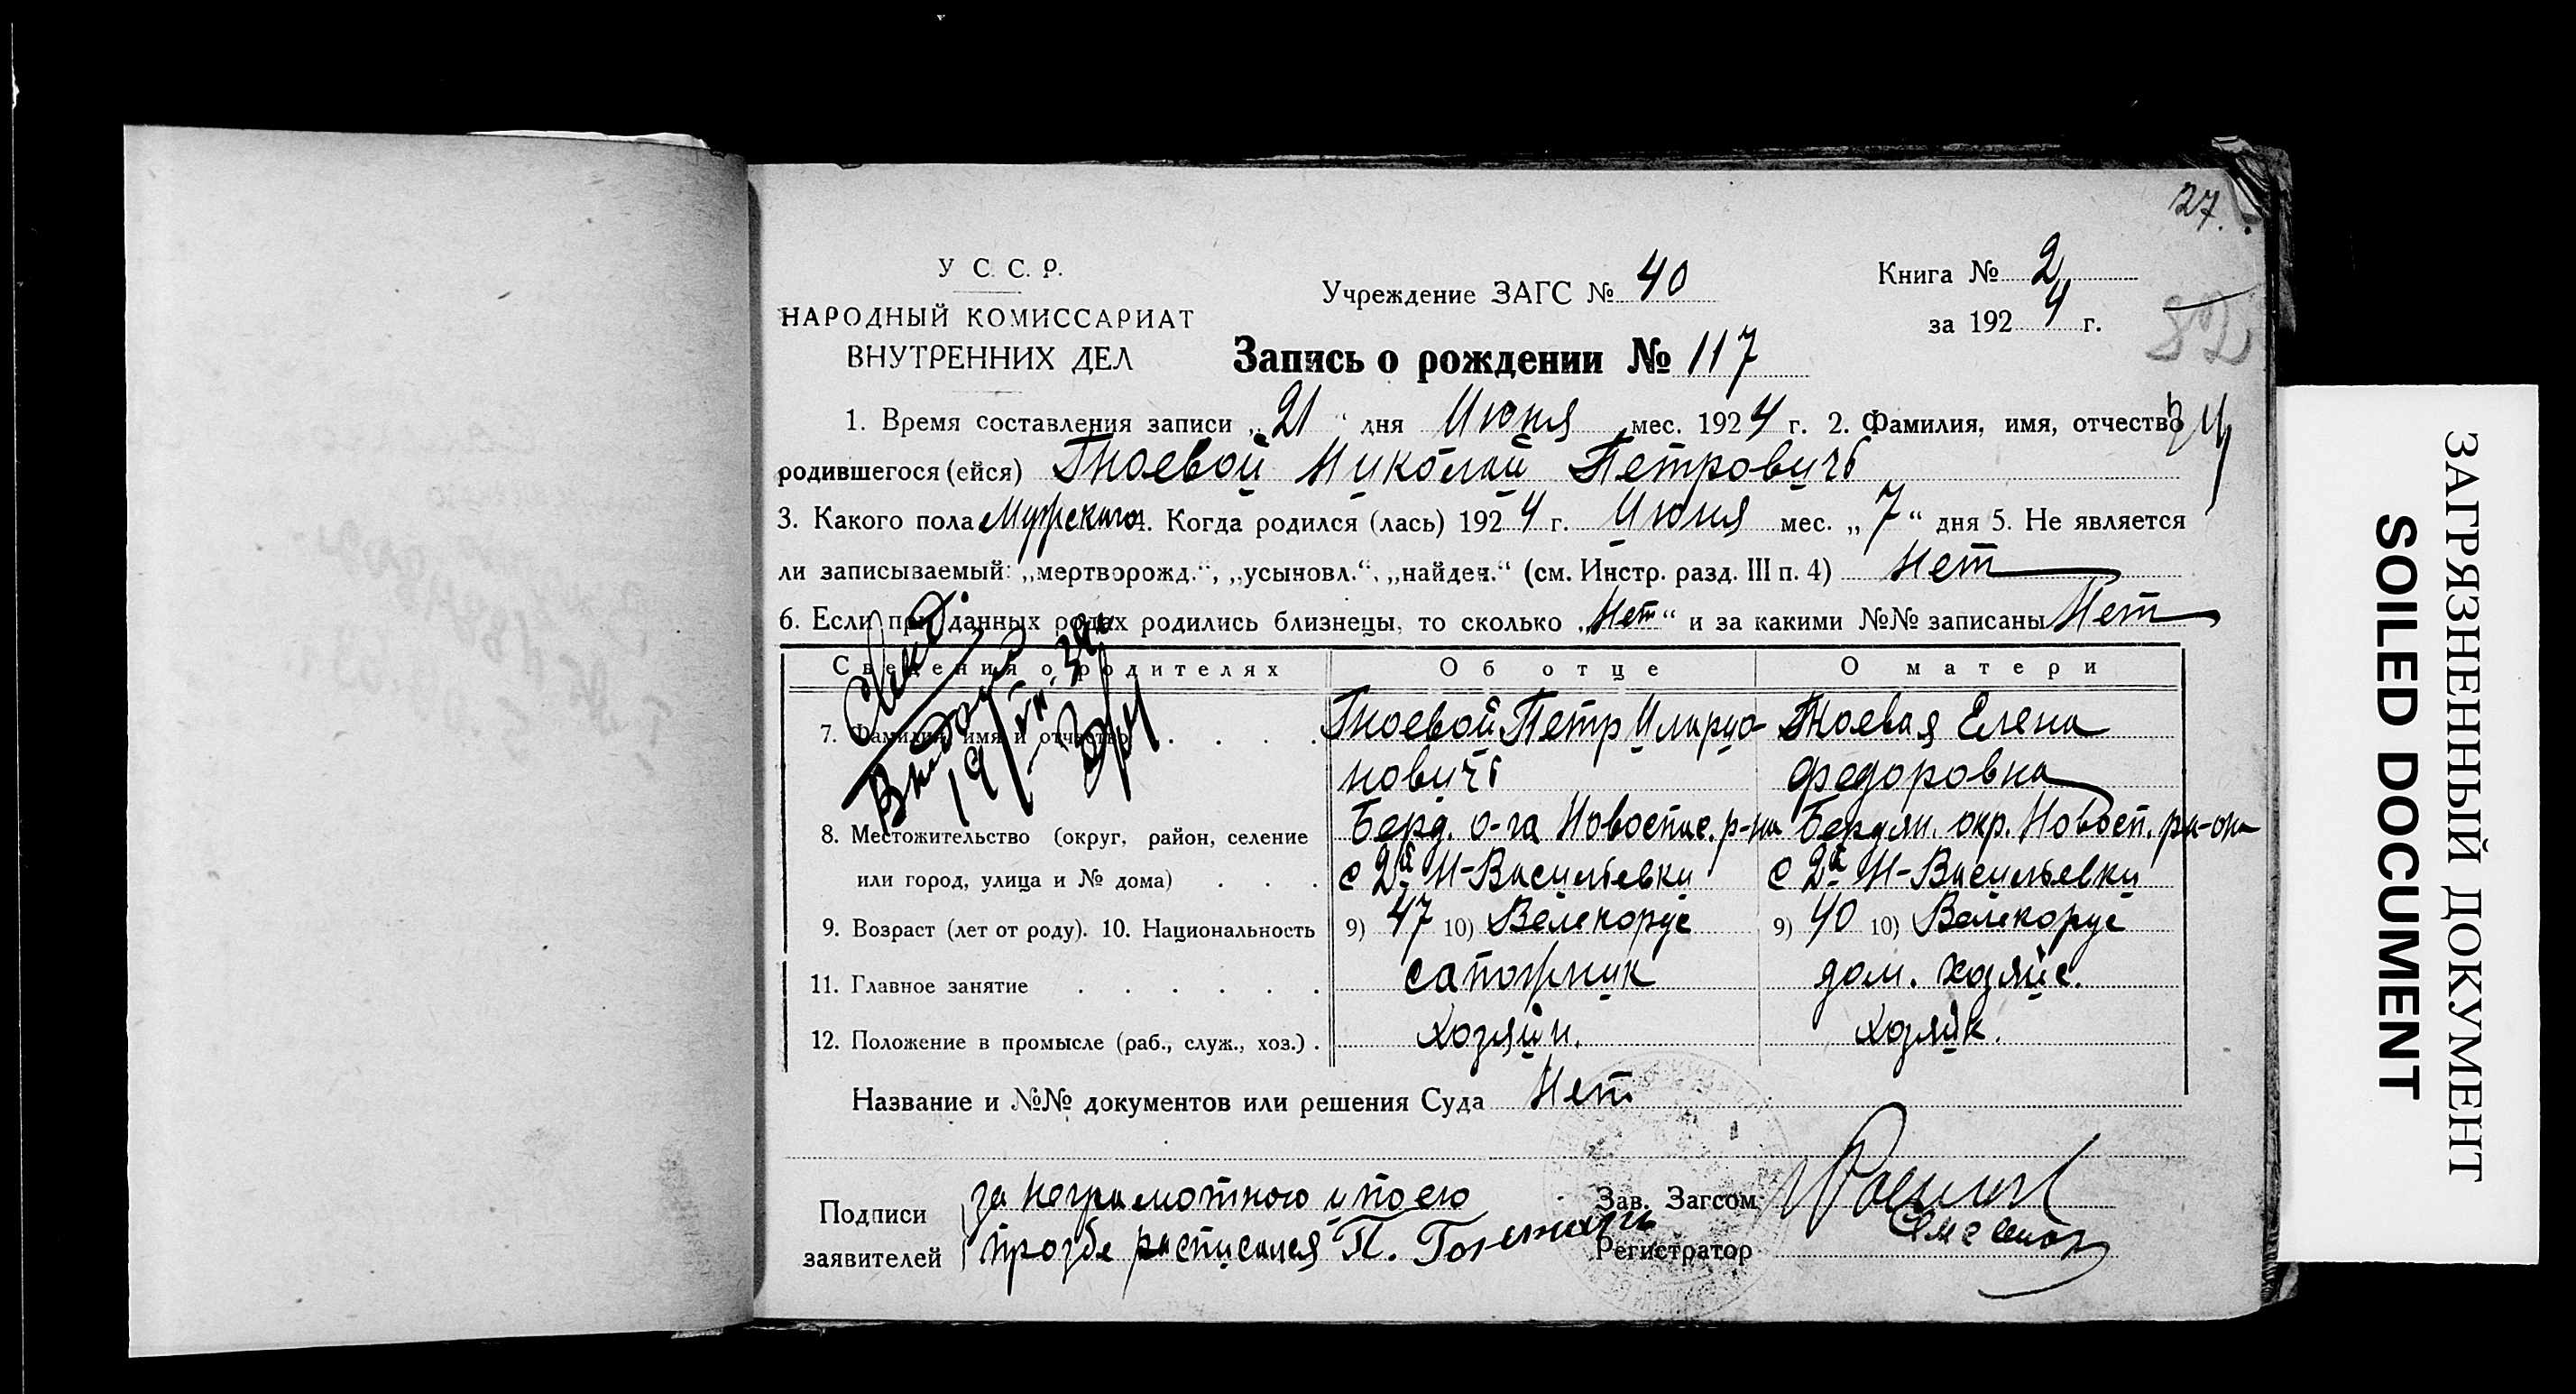 27.
У С. С. Р.
НАРОДНЫЙ КОМИССАРИАТ
ВНУТРЕННИХ ДЕЛ
Учреждение ЗАГС № 40
Книга № 2
за 1924 г.
Запись о рождении № 117
1. Время составления записи „21“ дня Июня мес. 1924 г. 2. Фамилия, имя, отчество
родившегося (ейся) Гноевой Николай Петровичъ
3. Какого пола Мужскаго 4. Когда родился (лась) 1924 г. Июня мес. „7“ дня 5. Не является
ли записываемый: „мертворожд.“, „усыновл.“, „найден.“ (см. Инстр. разд. III п. 4) Нет
6. Если при данных родах родились близнецы, то сколько „Нет“ и за какими №№ записаны Нет
Сведения о родителях Об отце О матери
7. Фамилия, имя и отчество Гноевой Петр Иларио- Гноевая Елена
новичъ Федоровна
8. Местожительство (округ, район, селение Берд. о-га Новоспас. р-на Бердян. окр. Новосп. ра-она
или город, улица и № дома) с 2й Н-Васильевки с 2й Н-Васильевки
9. Возраст (лет от роду). 10. Национальность 9) 47 10) Велекорус 9) 40 10) Велекорус
11. Главное занятие сапожник дом. хозяйс.
12. Положение в промысле (раб., служ., хоз.) Хозяин. хозяйк.
Название и №№ документов или решения Суда Нет
Подписи за неграмотного и по его Зав. Загсом
заявителей прозбе расписался П. Регистратор
ЗАГРЯЗНЕННЫЙ ДОКУМЕНТ
SOILED DOCUMENT